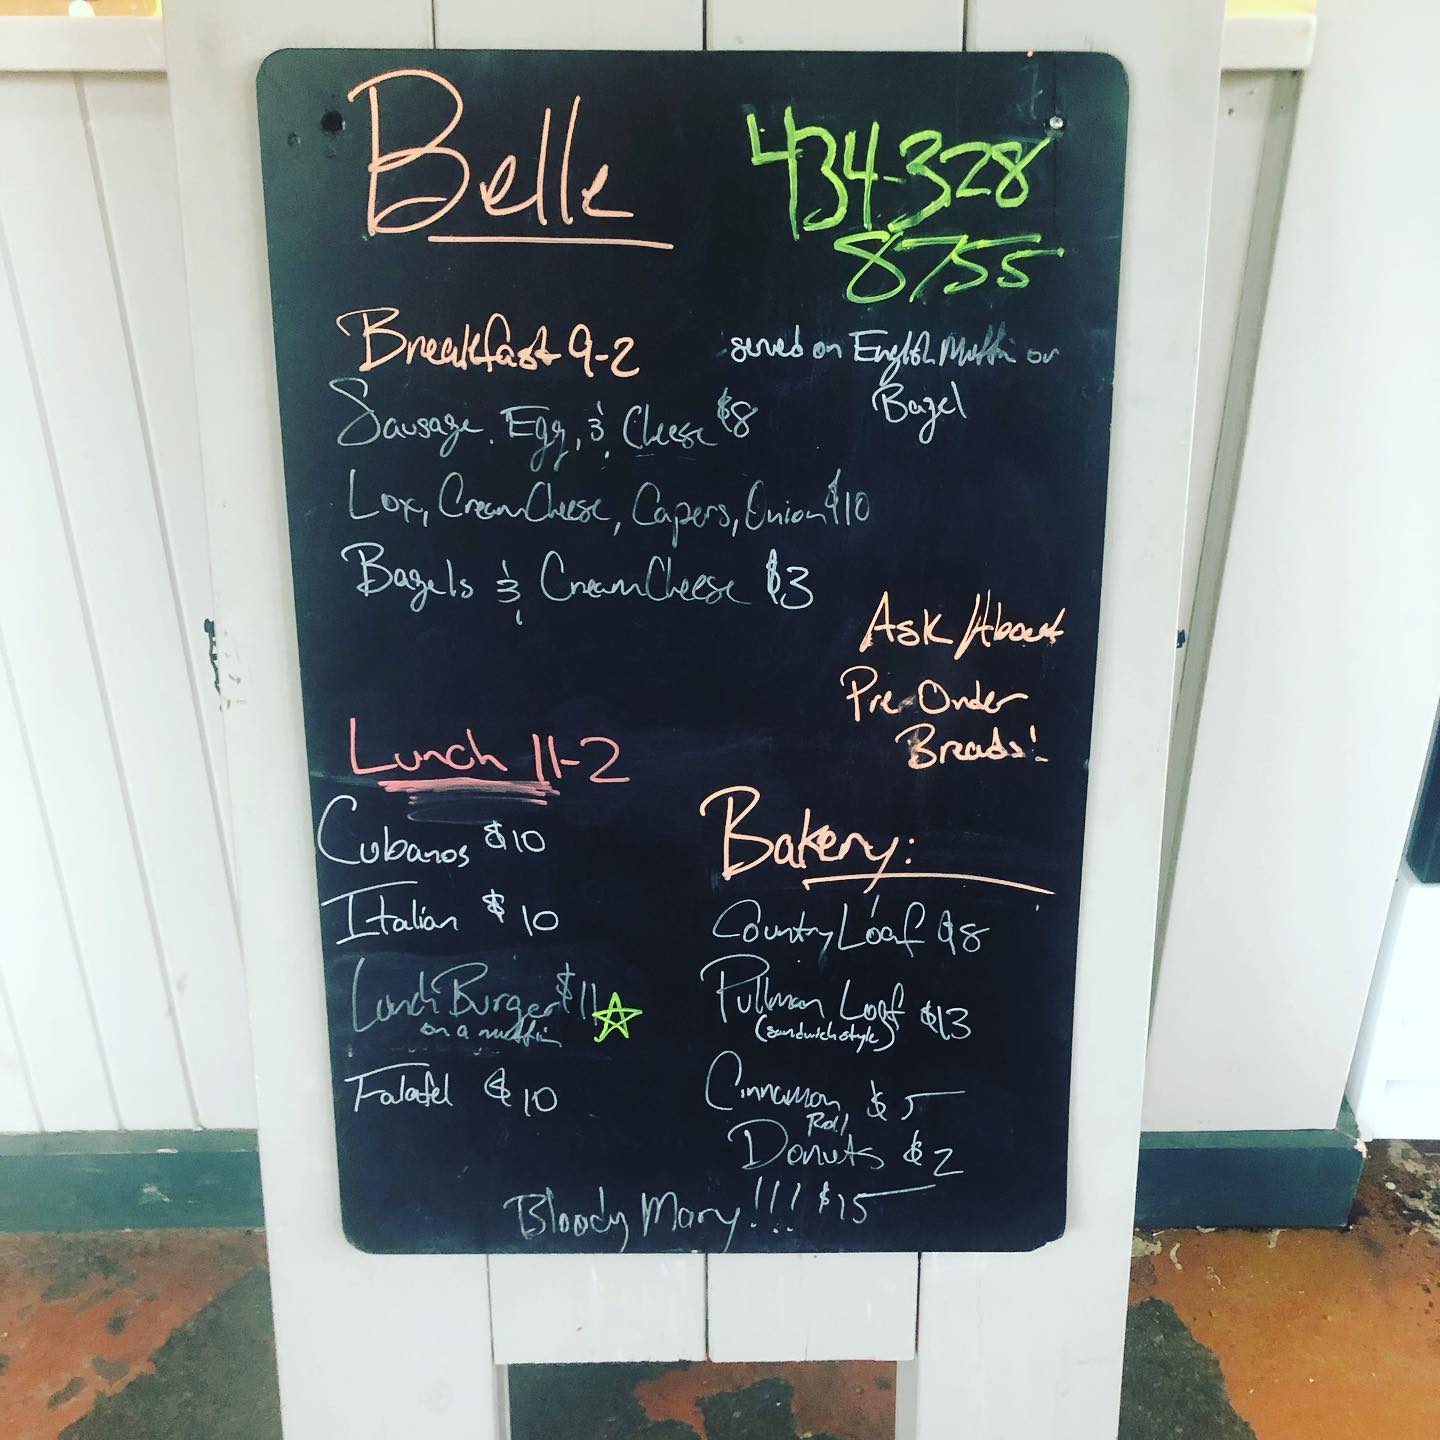 Belle
434-328
8755
Breakfast 9-2
served on English Muffin or
Bagel
Sausage, Egg, & Cheese $8
Lox, Cream Cheese, Capers, Onion $10
Bagels & Cream Cheese $3
Ask About
Pre-Order
Breads!
Lunch 11-2
Cubanos $10
Italian $10
Lunch Burger $11
on a muffin
Falafel $10
Bakery:
Country Loaf $8
Pullman Loaf $13
(sandwich style)
Cinnamon $5
Roll
Donuts $2
Bloody Mary!!! $15